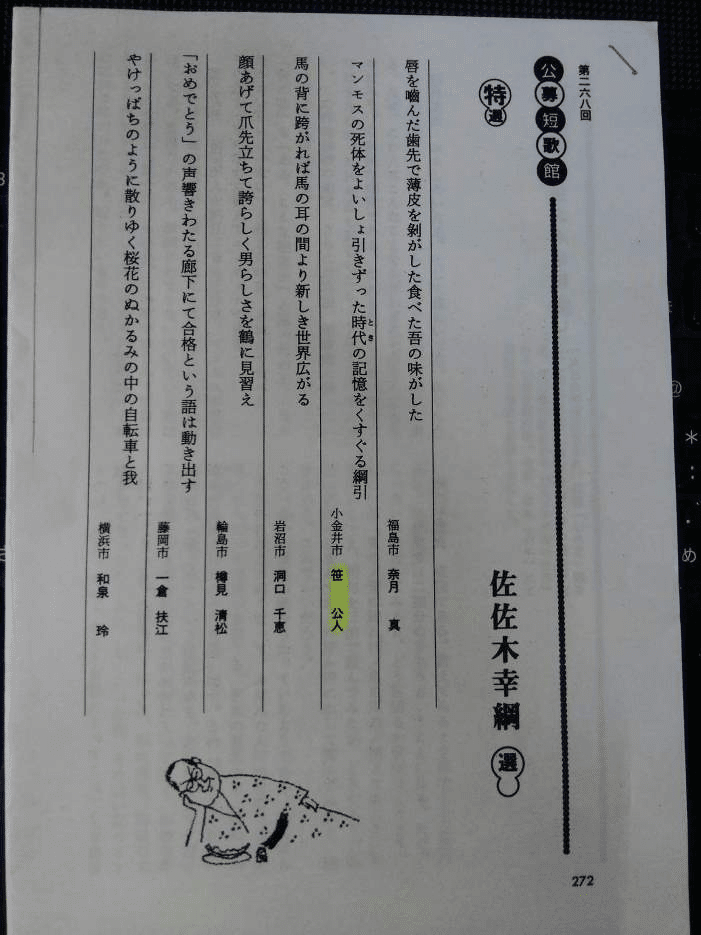 第二六八回
公募短歌館
特選
佐佐木幸綱 選
唇を嚙んだ歯先で薄皮を剝がした食べた吾の味がした
福島市 奈月 真
マンモスの死体をよいしょ引きずった時代の記憶をくすぐる綱引
とき
小金井市 笹 公人
馬の背に跨がれば馬の耳の間より新しき世界広がる
岩沼市 洞口 千恵
顔あげて爪先立ちて誇らしく男らしさを鶴に見習え
輪島市 樽見 清松
「おめでとう」の声響きわたる廊下にて合格という語は動き出す
藤岡市 一倉 扶江
やけっぱちのように散りゆく桜花のぬかるみの中の自転車と我
横浜市 和泉 玲
272
@
*
:
め